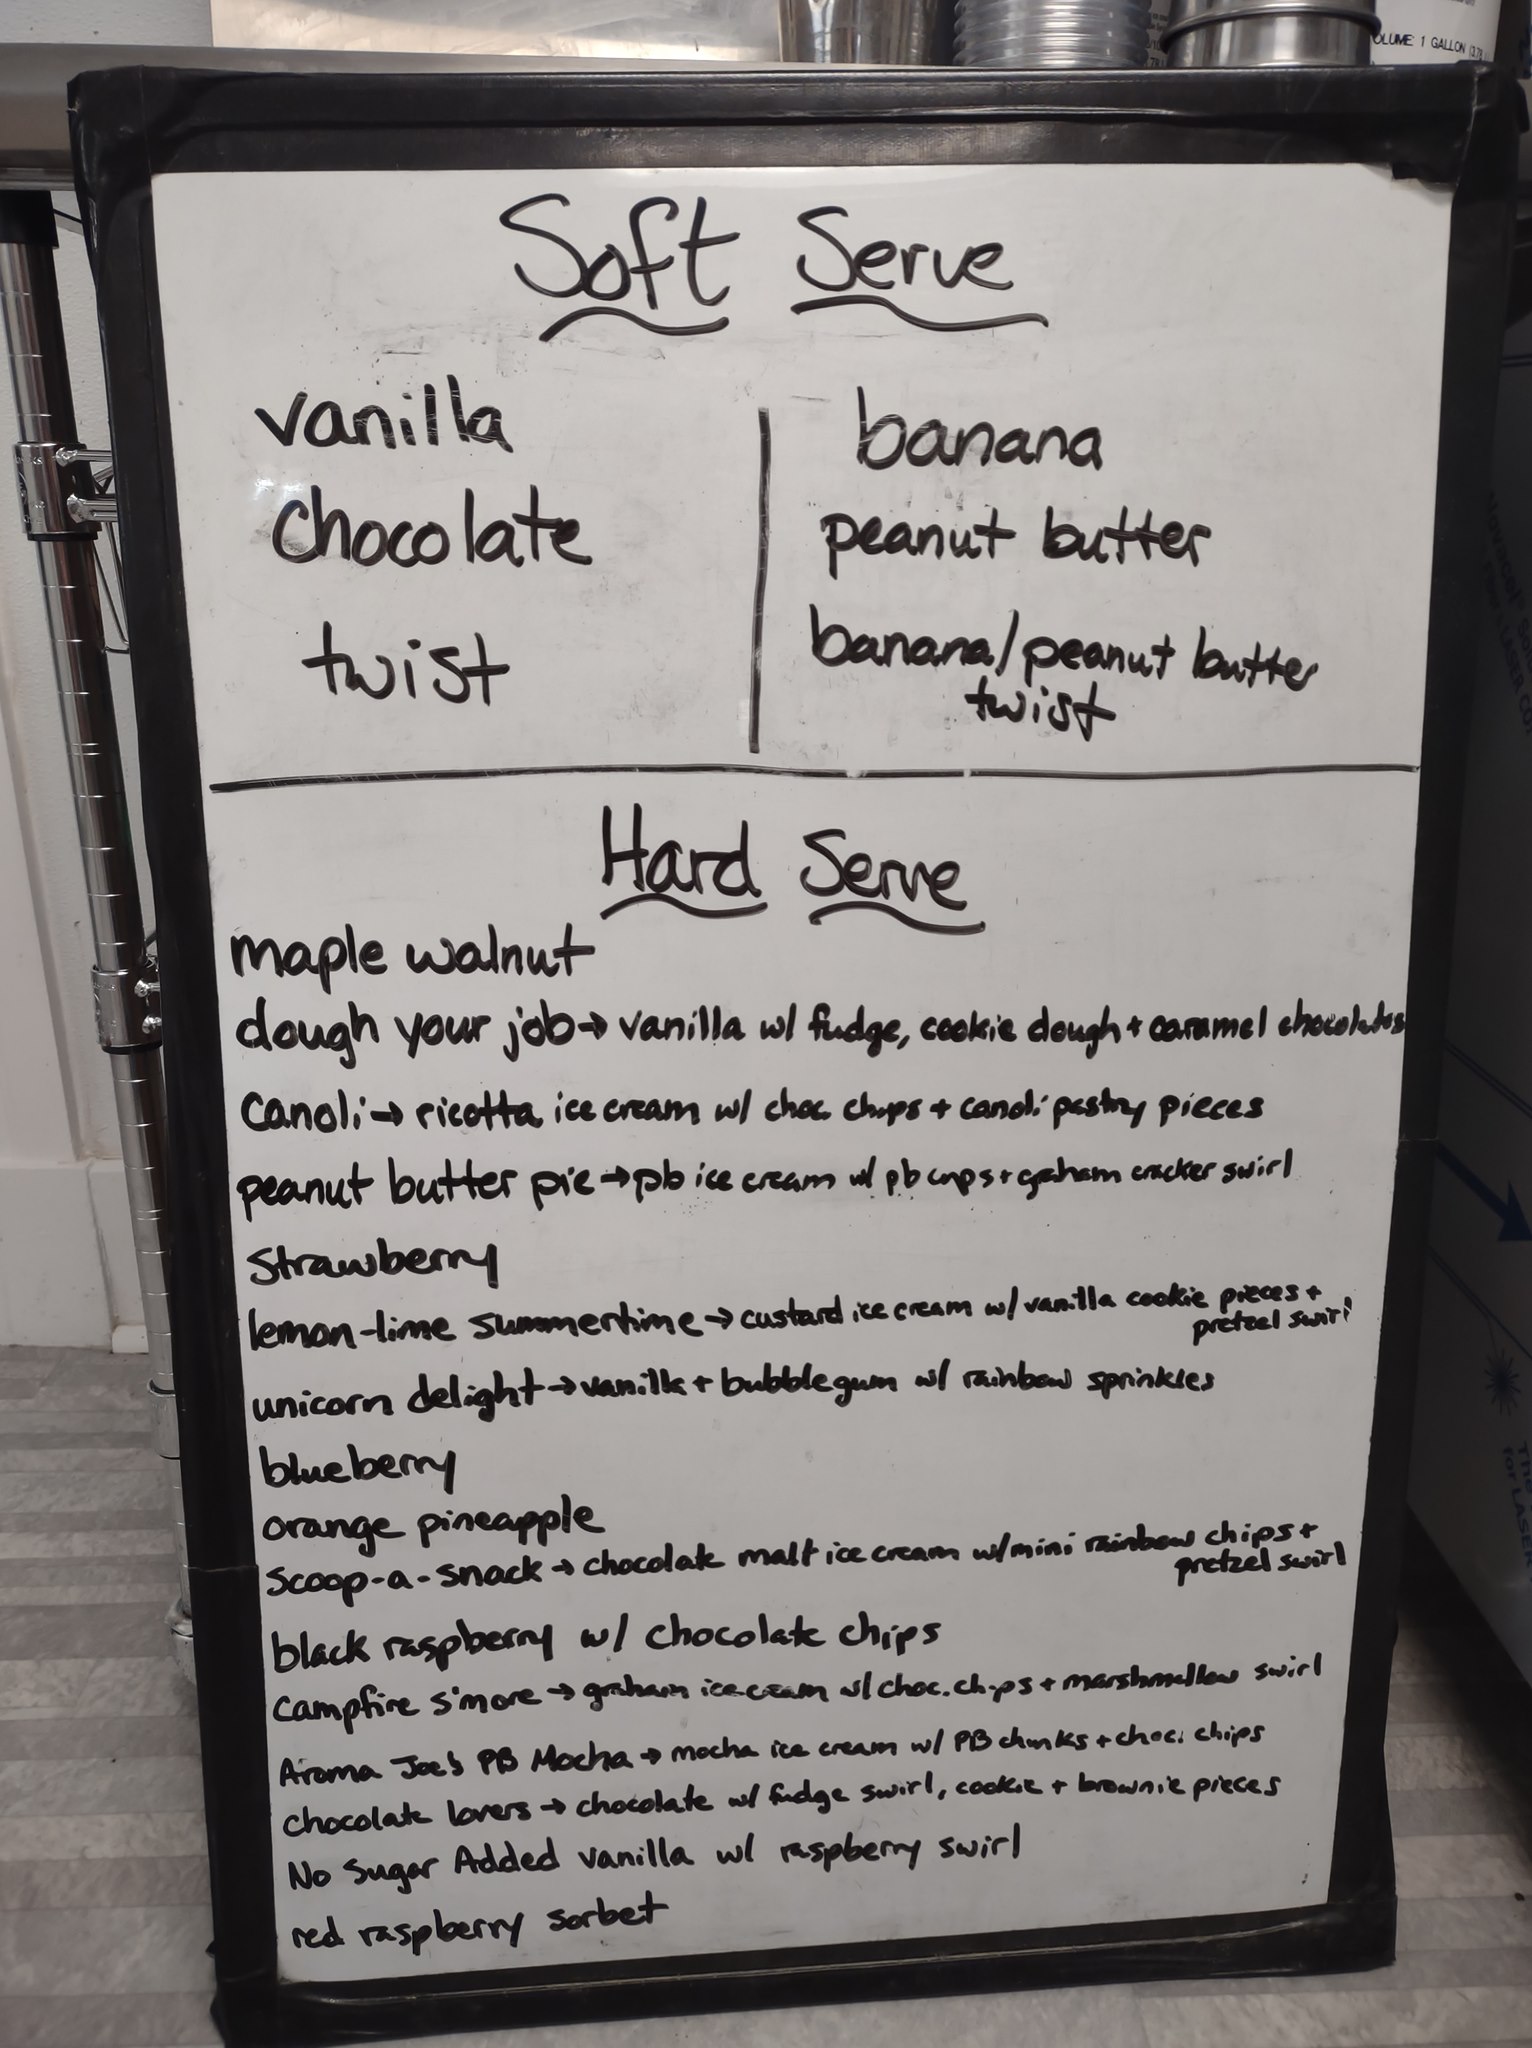 OLUME: 1 GALLON (3.78
Soft Serve
vanilla
chocolate
twist
banana
peanut butter
banana/peanut butter
twist
Hard Serve
maple walnut
dough your job → vanilla w/ fudge, cookie dough + caramel chocolates
canoli → ricotta ice cream w/ choc. chips + canoli pastry pieces
peanut butter pie → pb ice cream w/ pb cups + graham cracker swirl
strawberry
lemon-lime summertime → custard ice cream w/ vanilla cookie pieces +
pretzel swirl
unicorn delight → vanilla + bubblegum w/ rainbow sprinkles
blueberry
orange pineapple
scoop-a-snack → chocolate malt ice cream w/ mini rainbow chips +
pretzel swirl
black raspberry w/ chocolate chips
campfire s'more → graham ice cream w/ choc. chips + marshmallow swirl
Aroma Joe's PB Mocha → mocha ice cream w/ PB chunks + choc. chips
chocolate lovers → chocolate w/ fudge swirl, cookie + brownie pieces
No Sugar Added vanilla w/ raspberry swirl
red raspberry sorbet